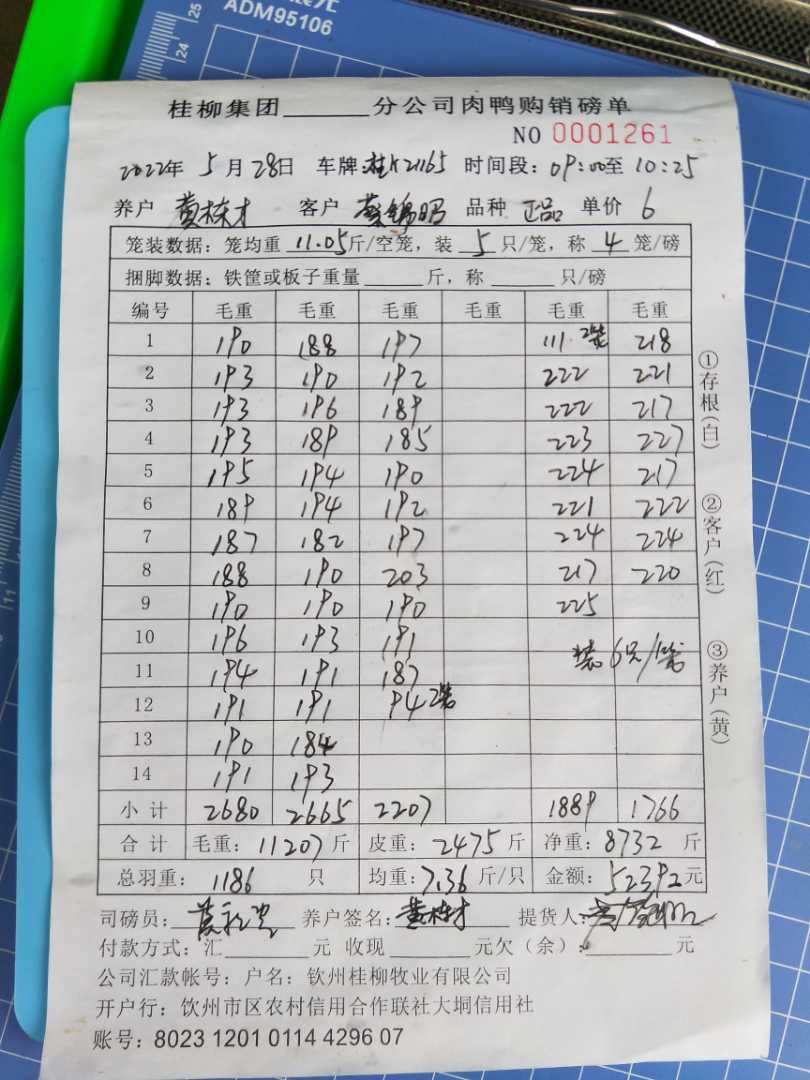 ADM95106
桂柳集团______分公司肉鸭购销磅单
NO 0001261
2022年 5月28日 车牌:桂K21165 时间段:09:00至10:25
养户 黄栋才 客户 蔡锦昭 品种 正品 单价 6
笼装数据：笼均重 11.05斤/空笼，装 5 只/笼，称 4 笼/磅
捆脚数据：铁筐或板子重量______斤，称______只/磅
编号 毛重 毛重 毛重 毛重 毛重 毛重
1 190 188 197 111 2笼 218
2 193 190 192 222 221
3 193 196 189 222 217
4 193 189 185 223 227
5 195 194 190 224 217
6 189 194 192 221 222
7 187 182 197 224 224
8 188 190 203 217 220
9 190 190 190 225
10 196 193 191
11 194 191 187 装6只/笼
12 191 191 94 2笼
13 190 184
14 191 193
小计 2680 2665 2207 1889 1766
合计 毛重：11207斤 皮重：2475斤 净重：8732 斤
总羽重：1186 只 均重：7.36斤/只 金额：52392元
①存根(白)
②客户(红)
③养户(黄)
司磅员: 养户签名:黄栋才 提货人:
付款方式：汇______元 收现______元欠（余）:______元
公司汇款帐号：户名：钦州桂柳牧业有限公司
开户行：钦州市区农村信用合作联社大垌信用社
账号：8023 1201 0114 4296 07